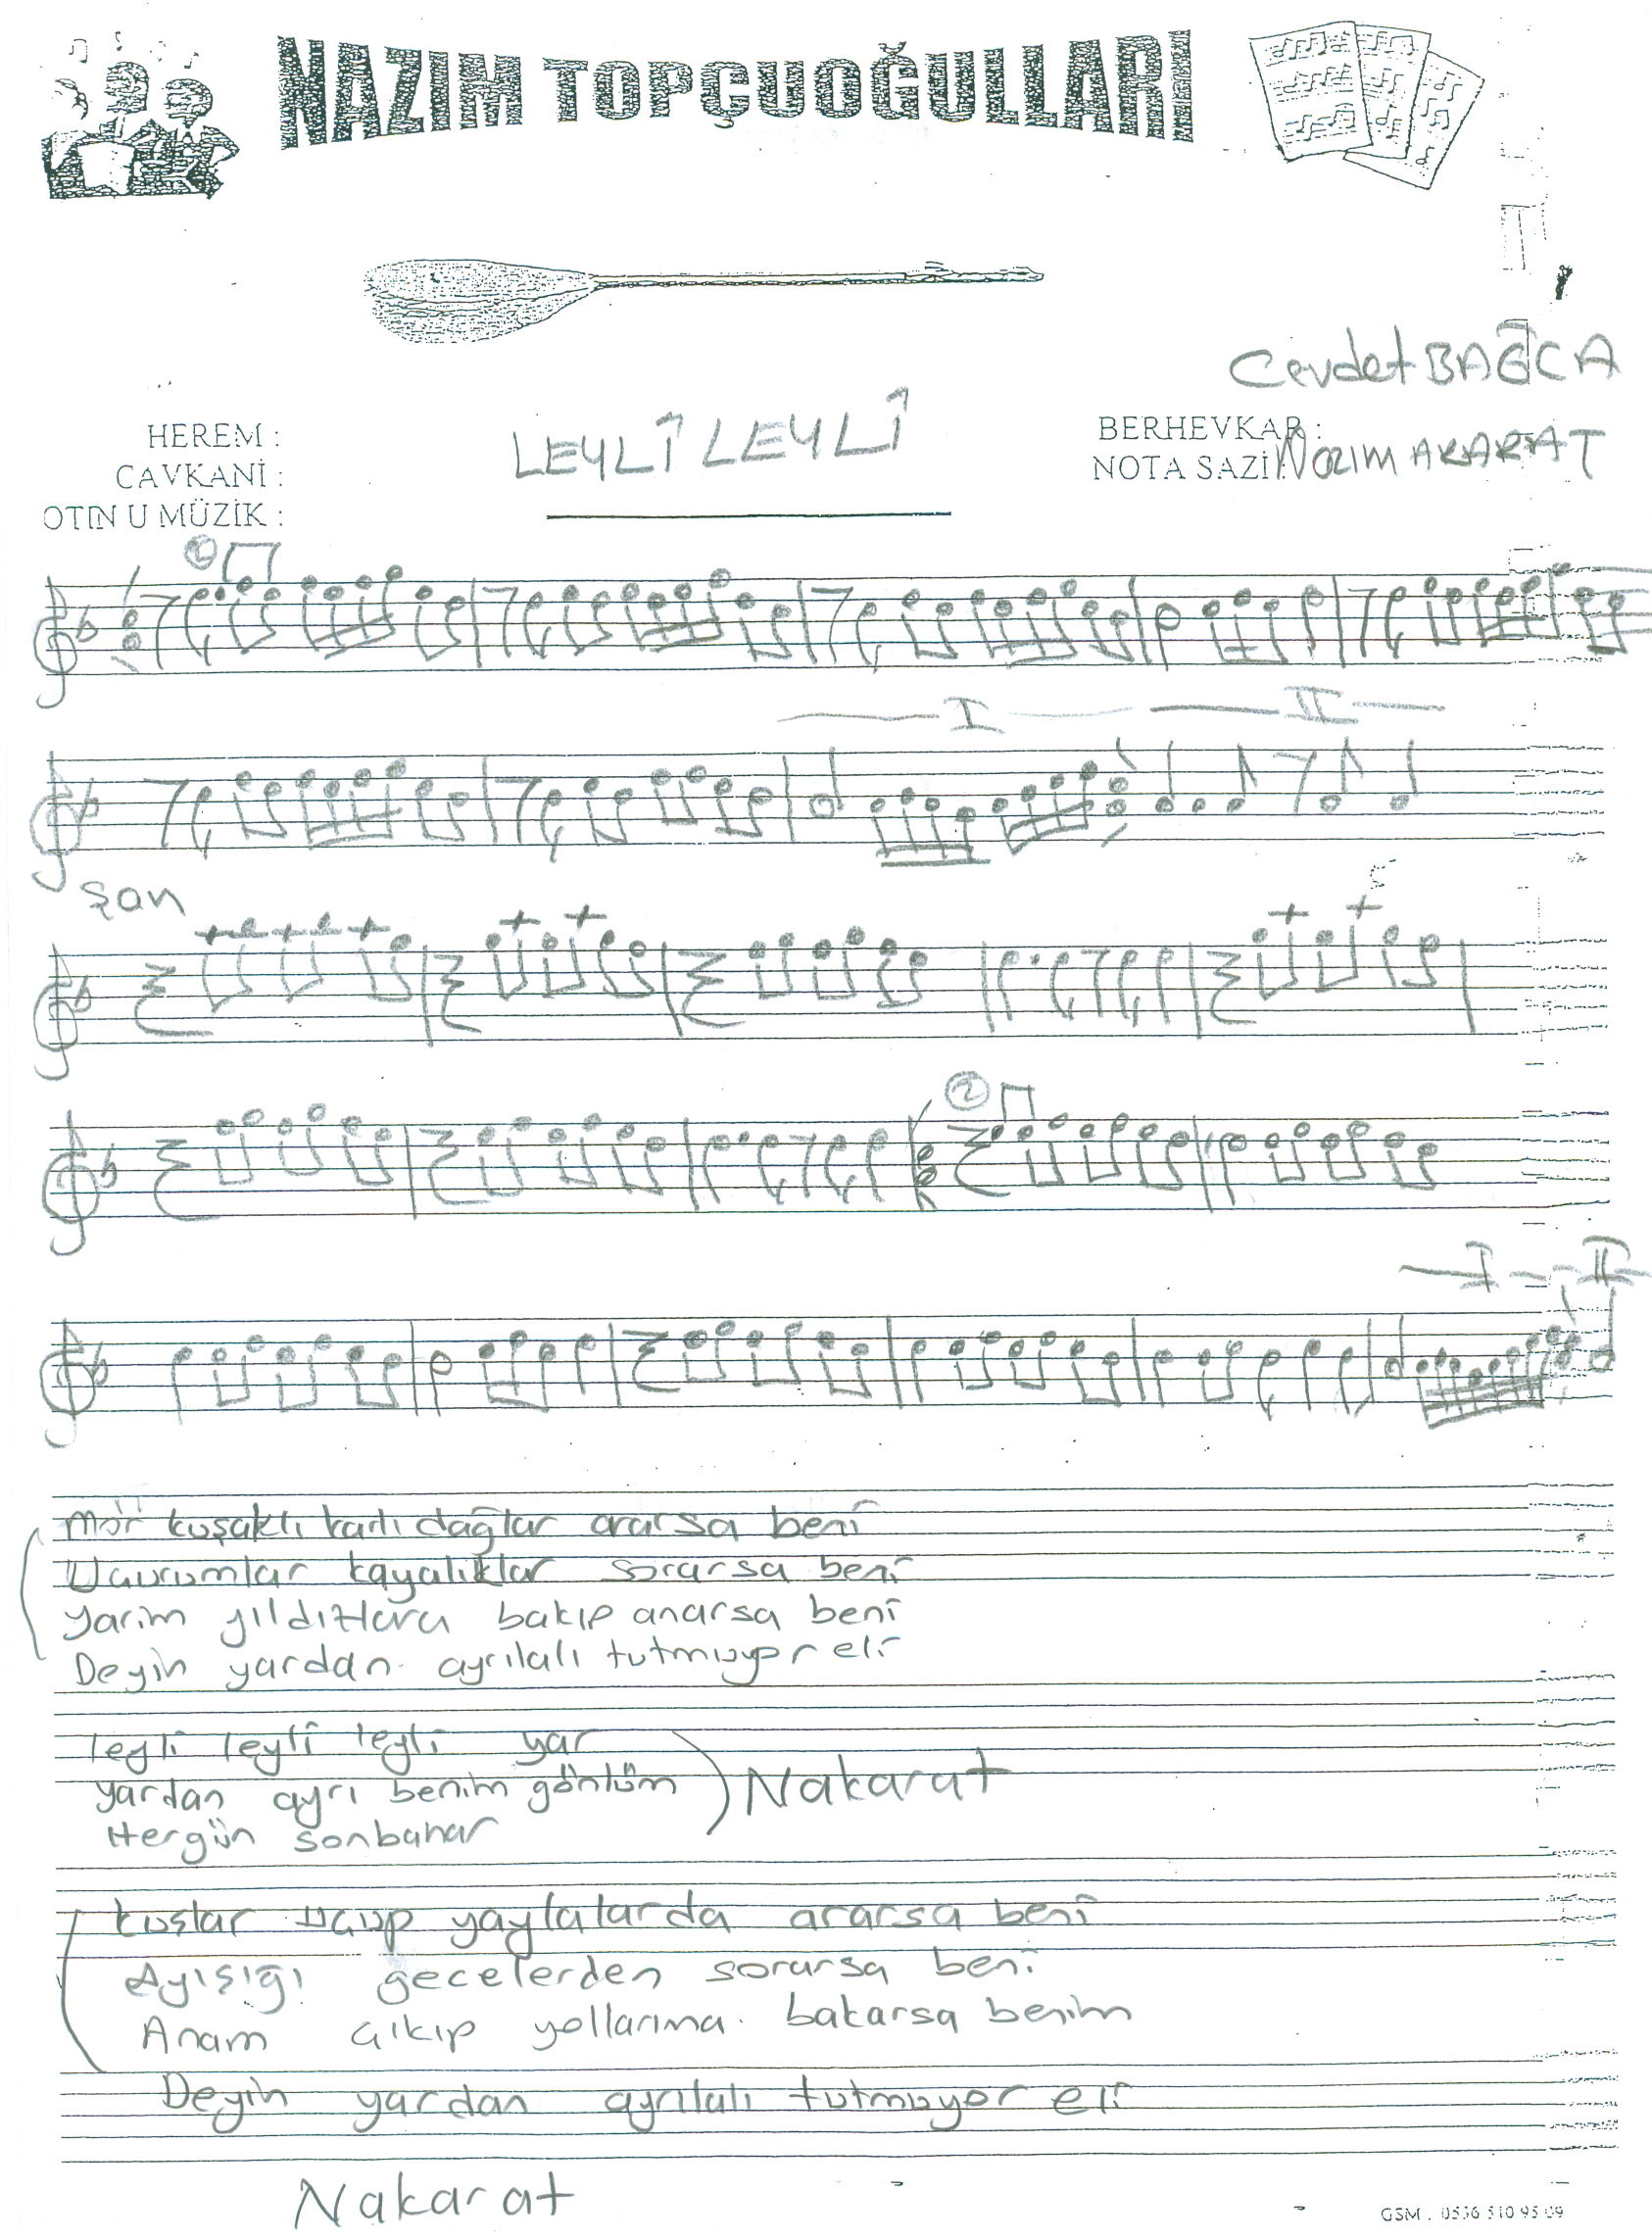 NAZIM TOPÇUOĞULLARI
Cevdet BAĞCA
HEREM :
CAVKANİ :
OTIN U MÜZİK :
LEYLÎ LEYLÎ
BERHEVKAR :
NOTA SAZİ : Nazım AKARAT
I II
şan
2
I II
Mor kuşaklı karlı dağlar ararsa beni
Uçurumlar kayalıklar sorarsa beni
Yarim yıldızlara bakıp anarsa beni
Deyin yardan ayrılalı tutmuyor eli
leyli leyli leyli yar
yardan ayrı benim gönlüm
Hergün sonbahar
Nakarat
kuşlar uçup yaylalarda ararsa beni
Ayışığı gecelerden sorarsa beni
Anam çıkıp yollarıma bakarsa benim
Deyin yardan ayrılalı tutmuyor eli
Nakarat
GSM . 0536 510 95 09